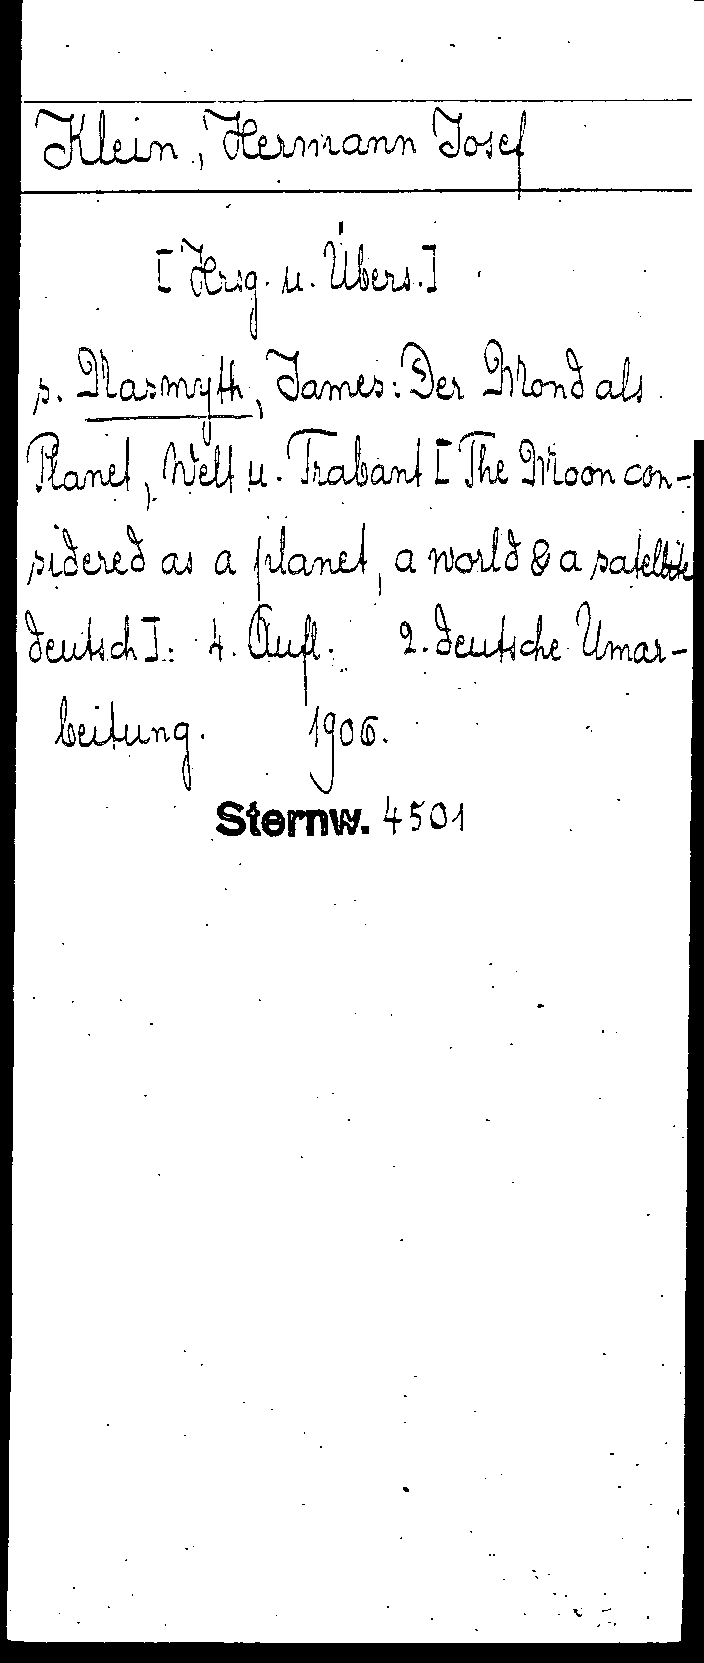 Klein, Hermann Josef
[Hrsg. u. Übers.]
s. Nasmyth, James: Der Mond als
Planet, Welt u. Trabant [The Moon con-
sidered as a planet, a world & a satellite
deutsch]. 4. Aufl. 2. deutsche Umar-
beitung. 1906.
Sternw. 4501